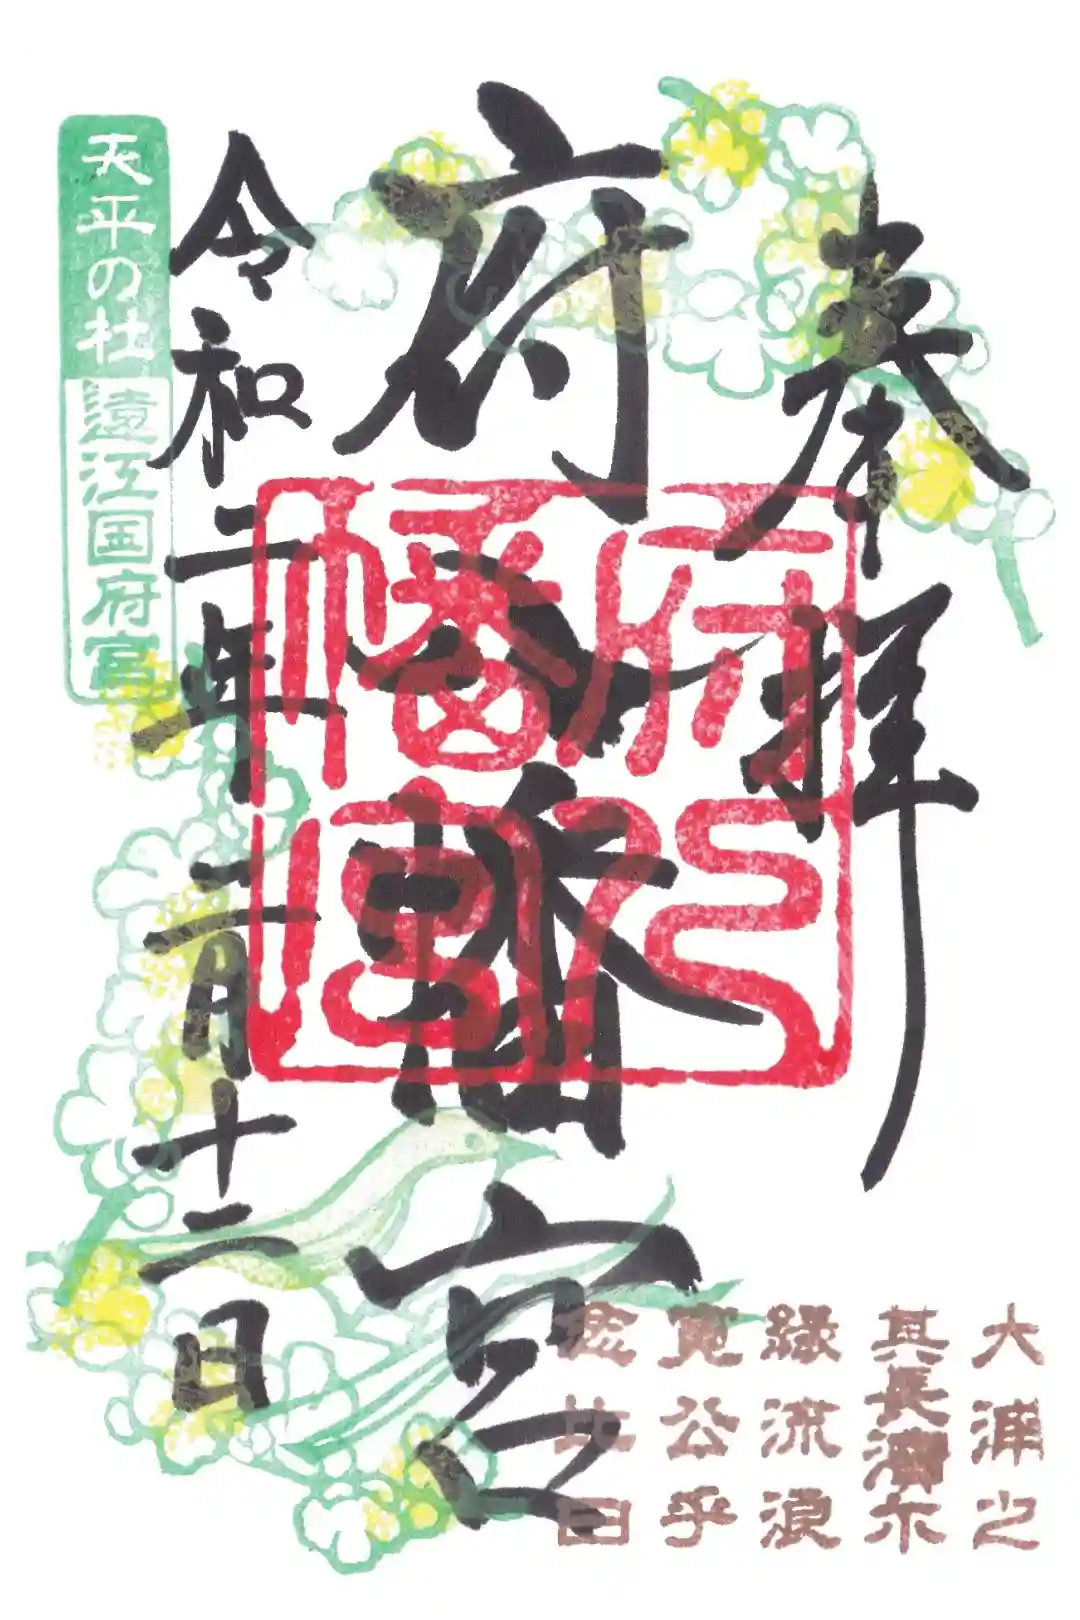 奉拝
府八幡宮
令和二年二月十二日
天平の杜 遠江国府宮
府八幡宮
大浦之
其長濱尓
縁流浪
寛公乎
念比日